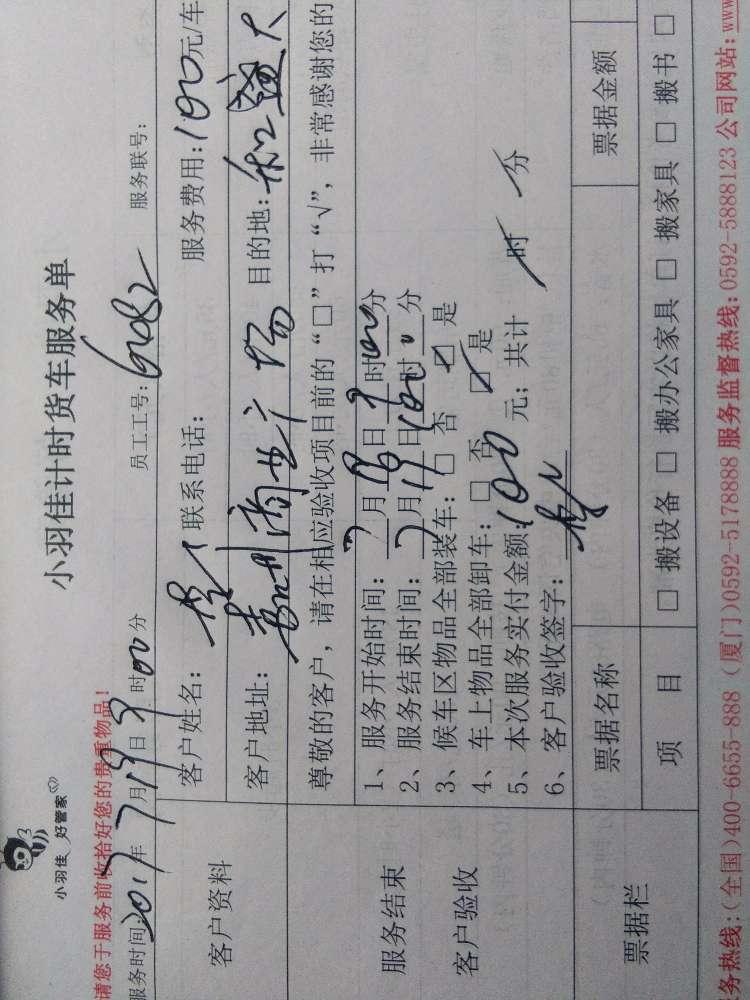 小羽佳 好管家
小羽佳计时货车服务单
请您于服务前收拾好您的贵重物品!
服务时间:2017年7月19日9时00分 员工工号: 服务联号:
客户资料
客户姓名: 联系电话: 服务费用:100元/车
客户地址: 商业广场 目的地:
尊敬的客户,请在相应验收项目前的“□”打“√”,非常感谢您的
服务结束
客户验收
1、服务开始时间:7月19日9时00分
2、服务结束时间:7月19日10时0分
3、候车区物品全部装车:□否 ☑是
4、车上物品全部卸车:□否 ☑是
5、本次服务实付金额:100元;共计 时 分
6、客户验收签字:
票据栏
票据名称 票据金额
项 目 □搬设备 □搬办公家具 □搬家具 □搬书 □
务热线:(全国)400-6655-888 (厦门)0592-5178888 服务监督热线:0592-5888123 公司网站:www